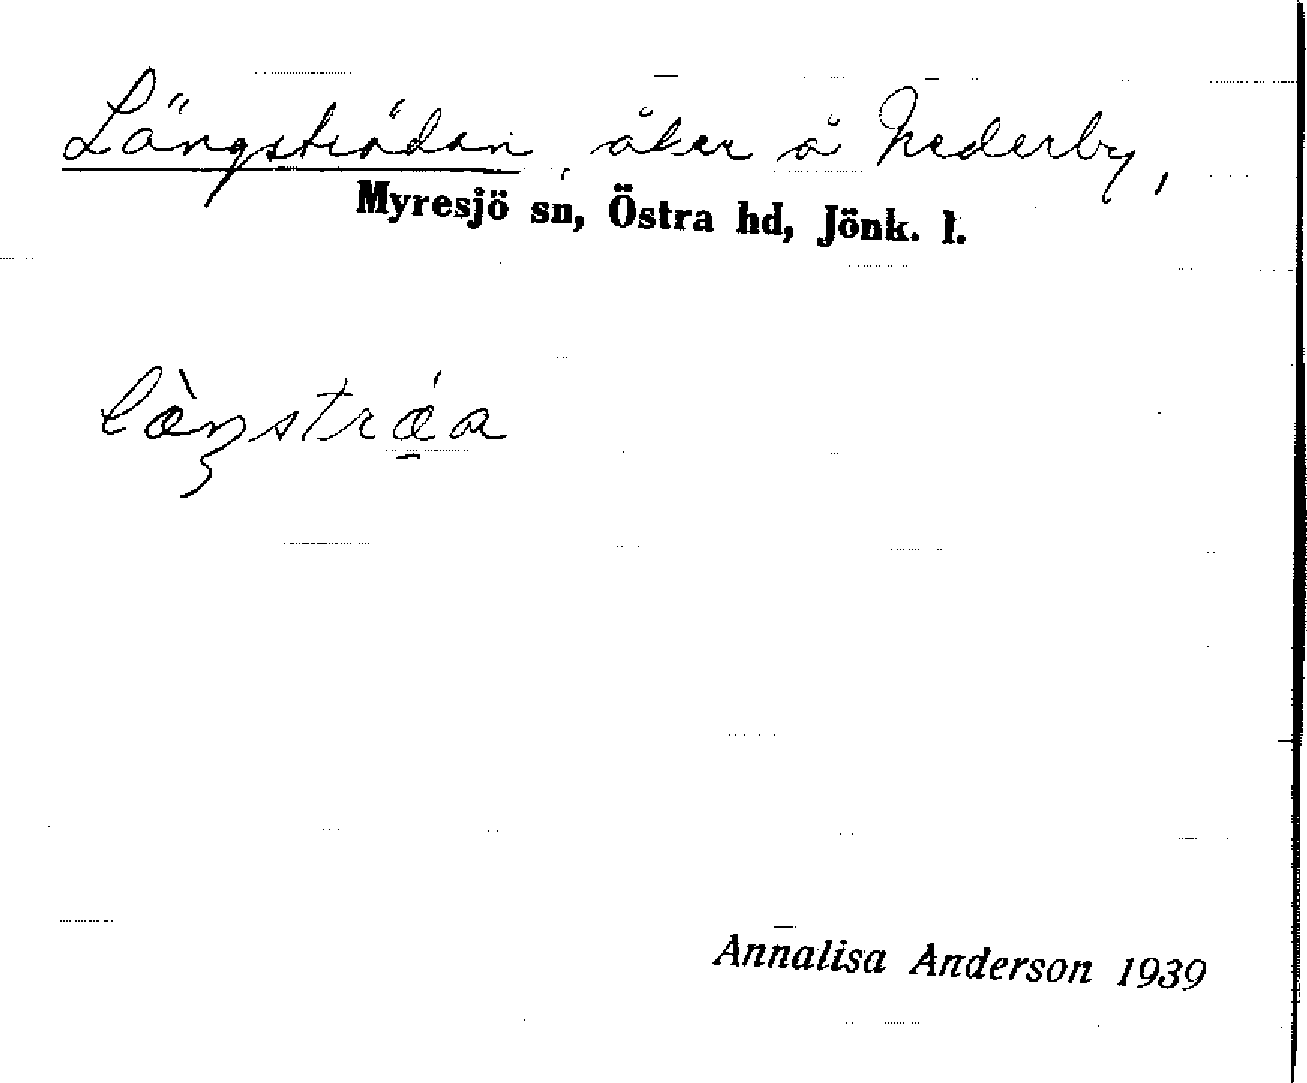 Långsträdan, åker å Nederby,
Myresjö sn, Östra hd, Jönk. l.
Annalisa Anderson 1939